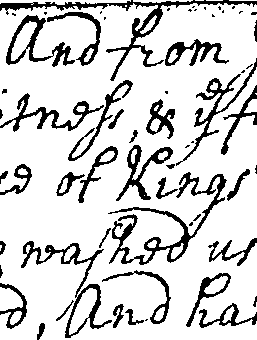 And from
itness, & yᵉ fi
ce of Kings
washed us
d, And ha